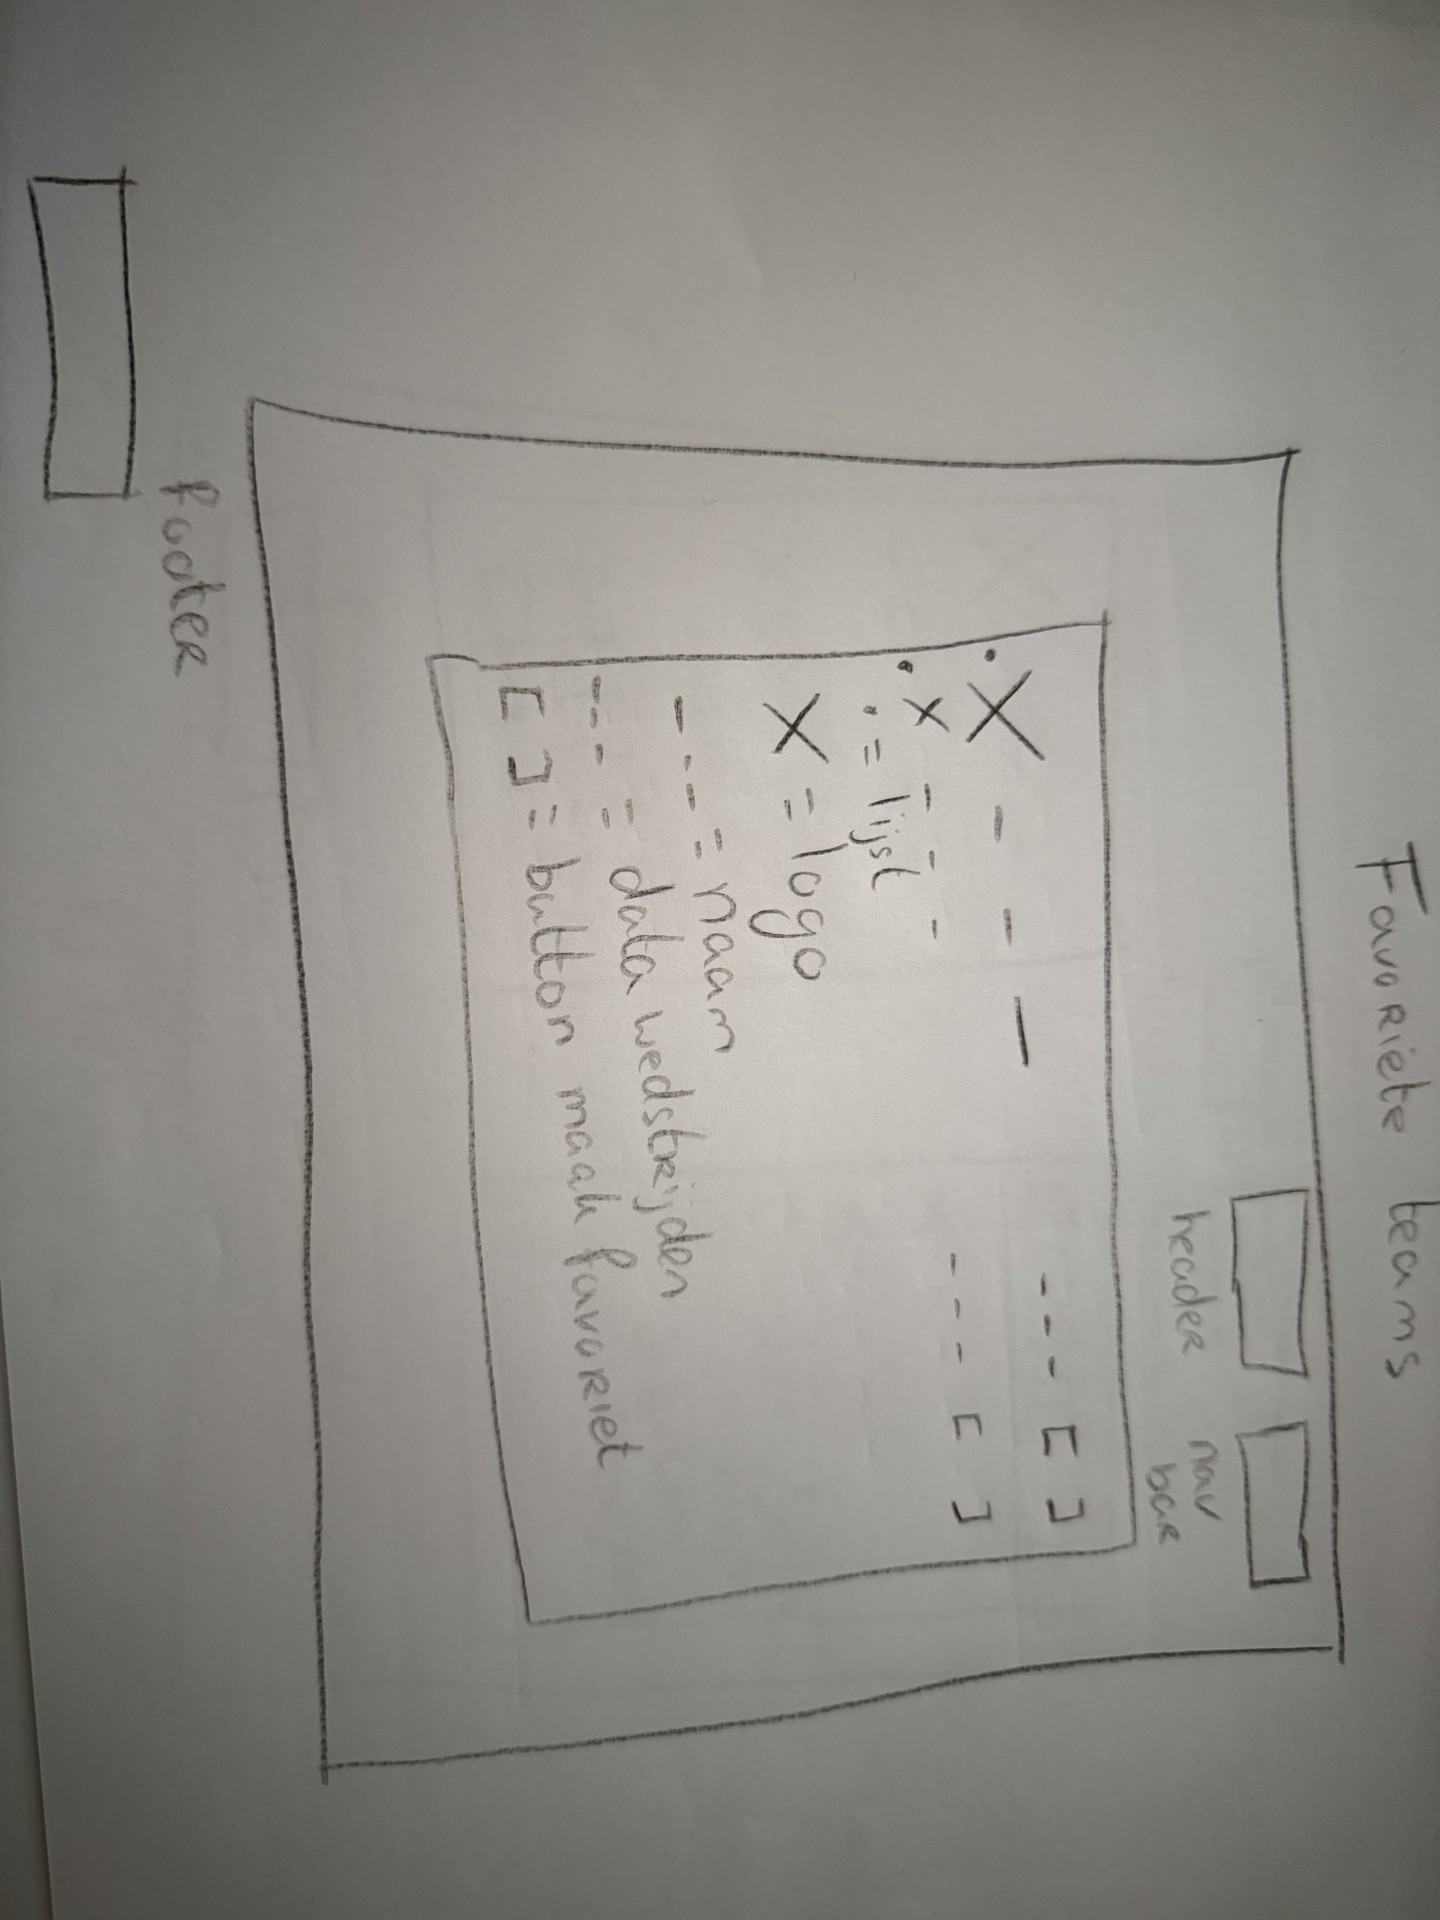 Favoriete teams
header
nav
bar
. X - - — - - - [ ]
. X - - - - - - [ ]
. = lijst
X = logo
- - - = naam
- - - = data wedstrijden
[ ] = button maak favoriet
footer